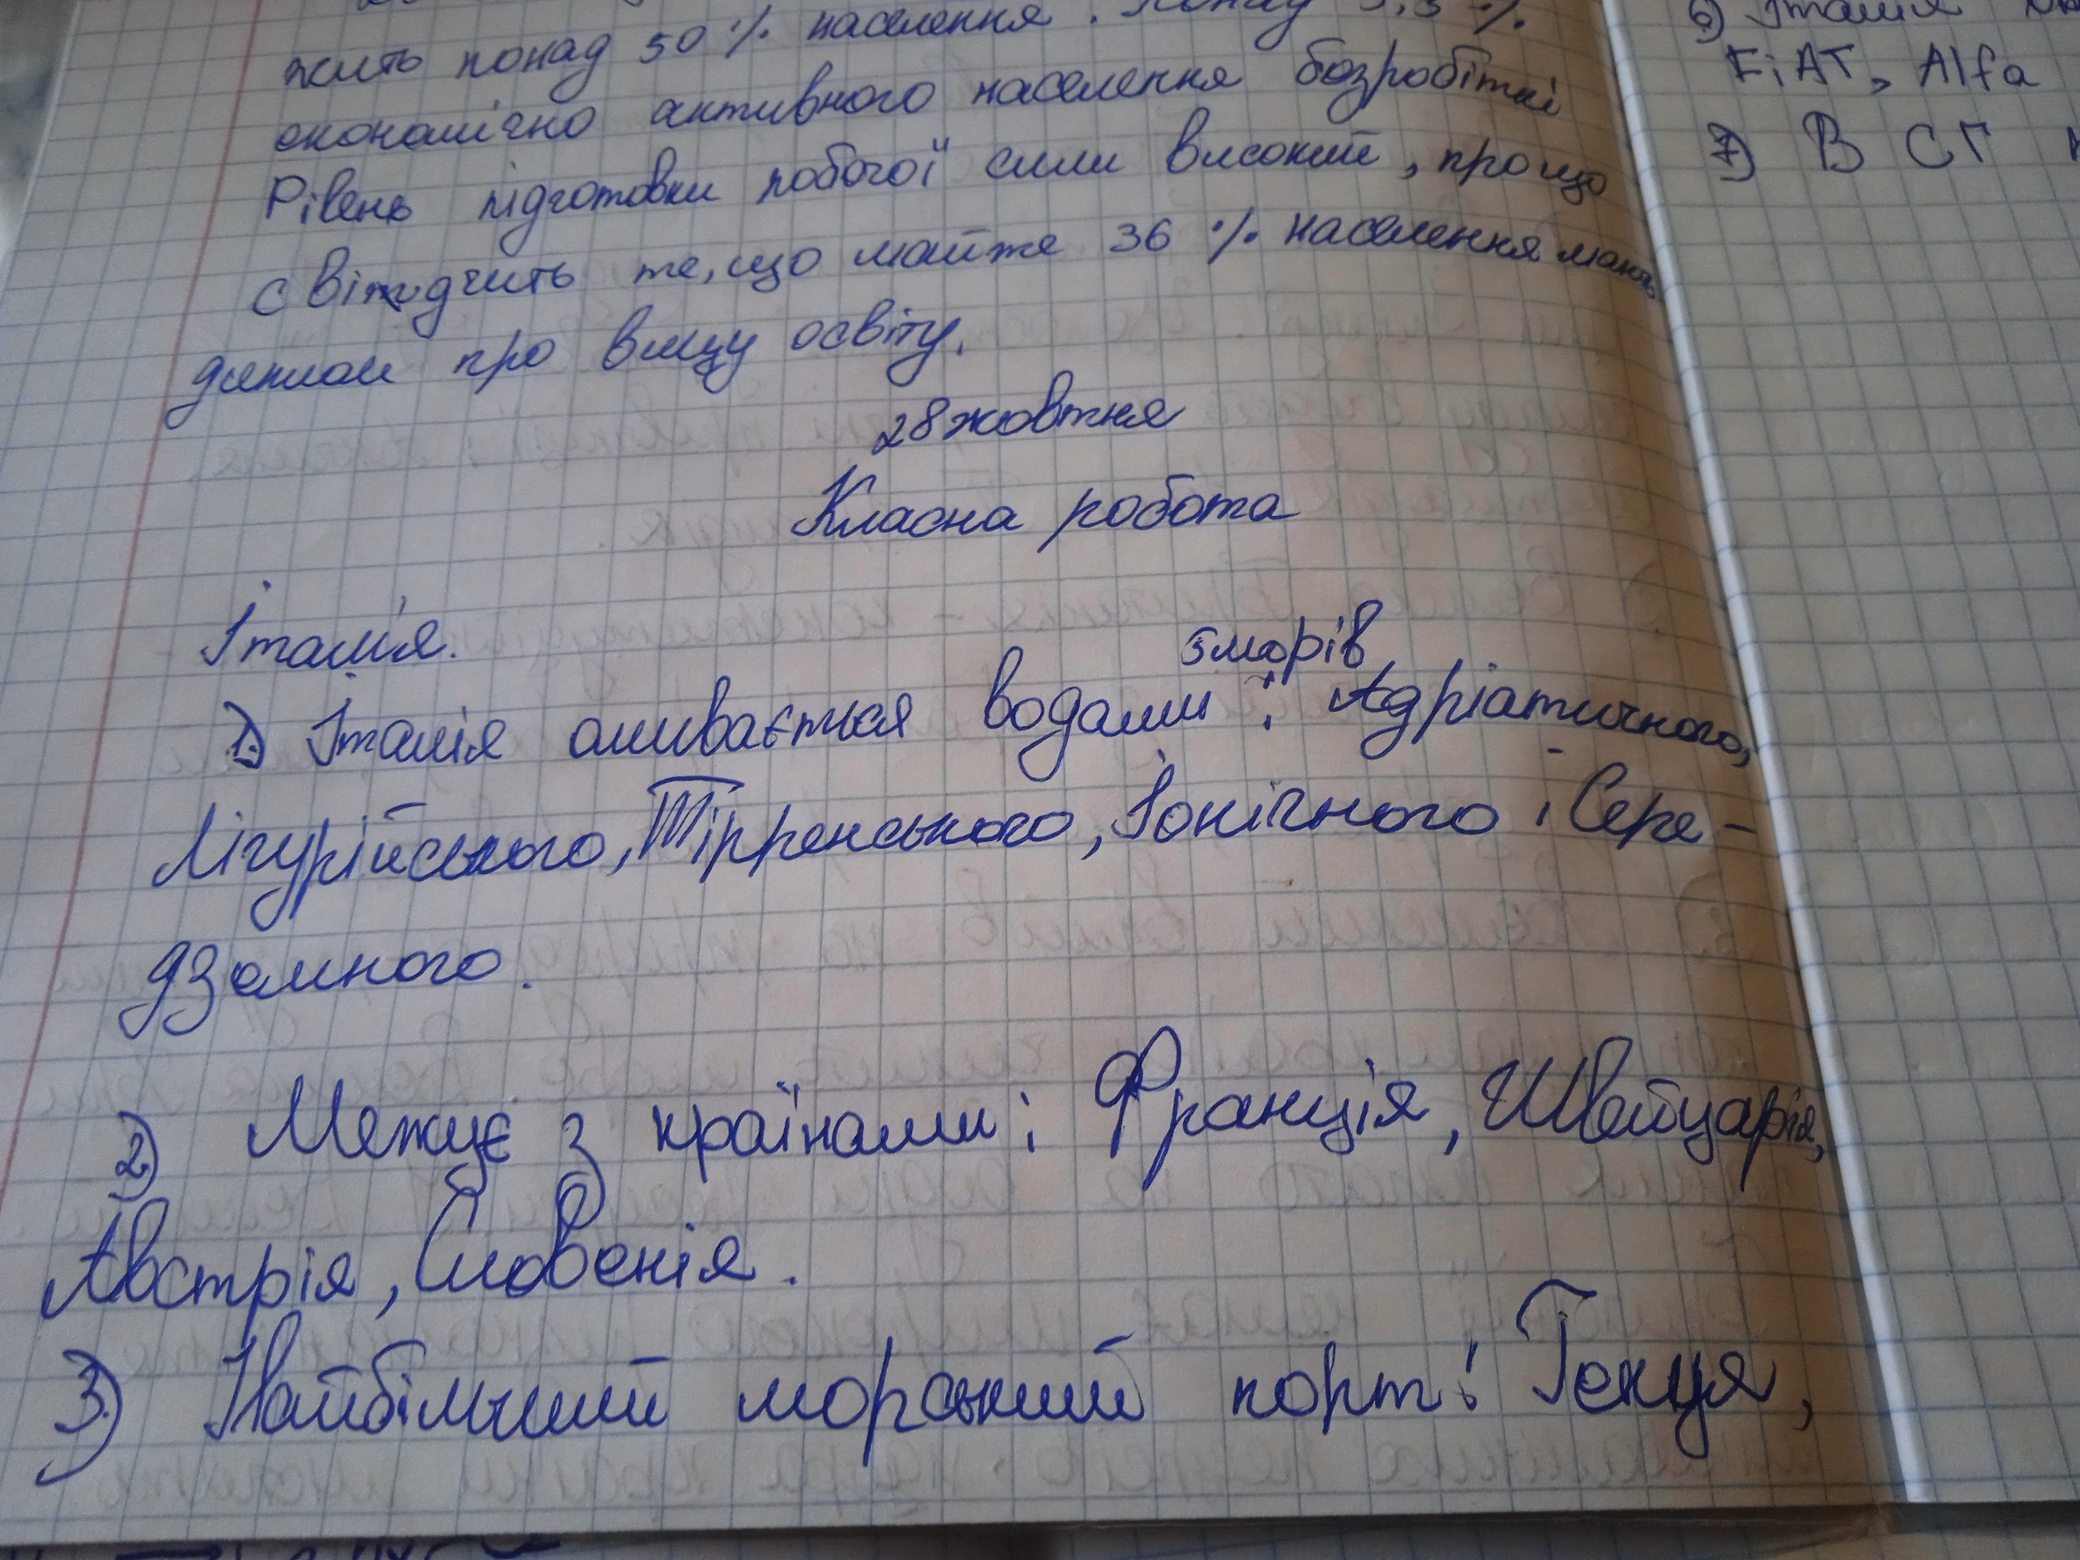 жить понад 50% населення. Понад 5,5 %
економічно активного населення безробітні
Рівень підготовки робочої сили високий, про що
свідчить те, що майже 36 % населення мають
диплом про вищу освіту.
28 жовтня
Класна робота
Італія.
5 морів
1) Італія омивається водами : Адріатичного,
Лігурійського, Тірренського, Іонічного і Сере-
дземного.
2) Межує з країнами: Франція, Швейцарія,
Австрія, Словенія.
3) Найбільший морський порт: Генуя,
6) Італія
FiAT, Alfa
7) В СГ